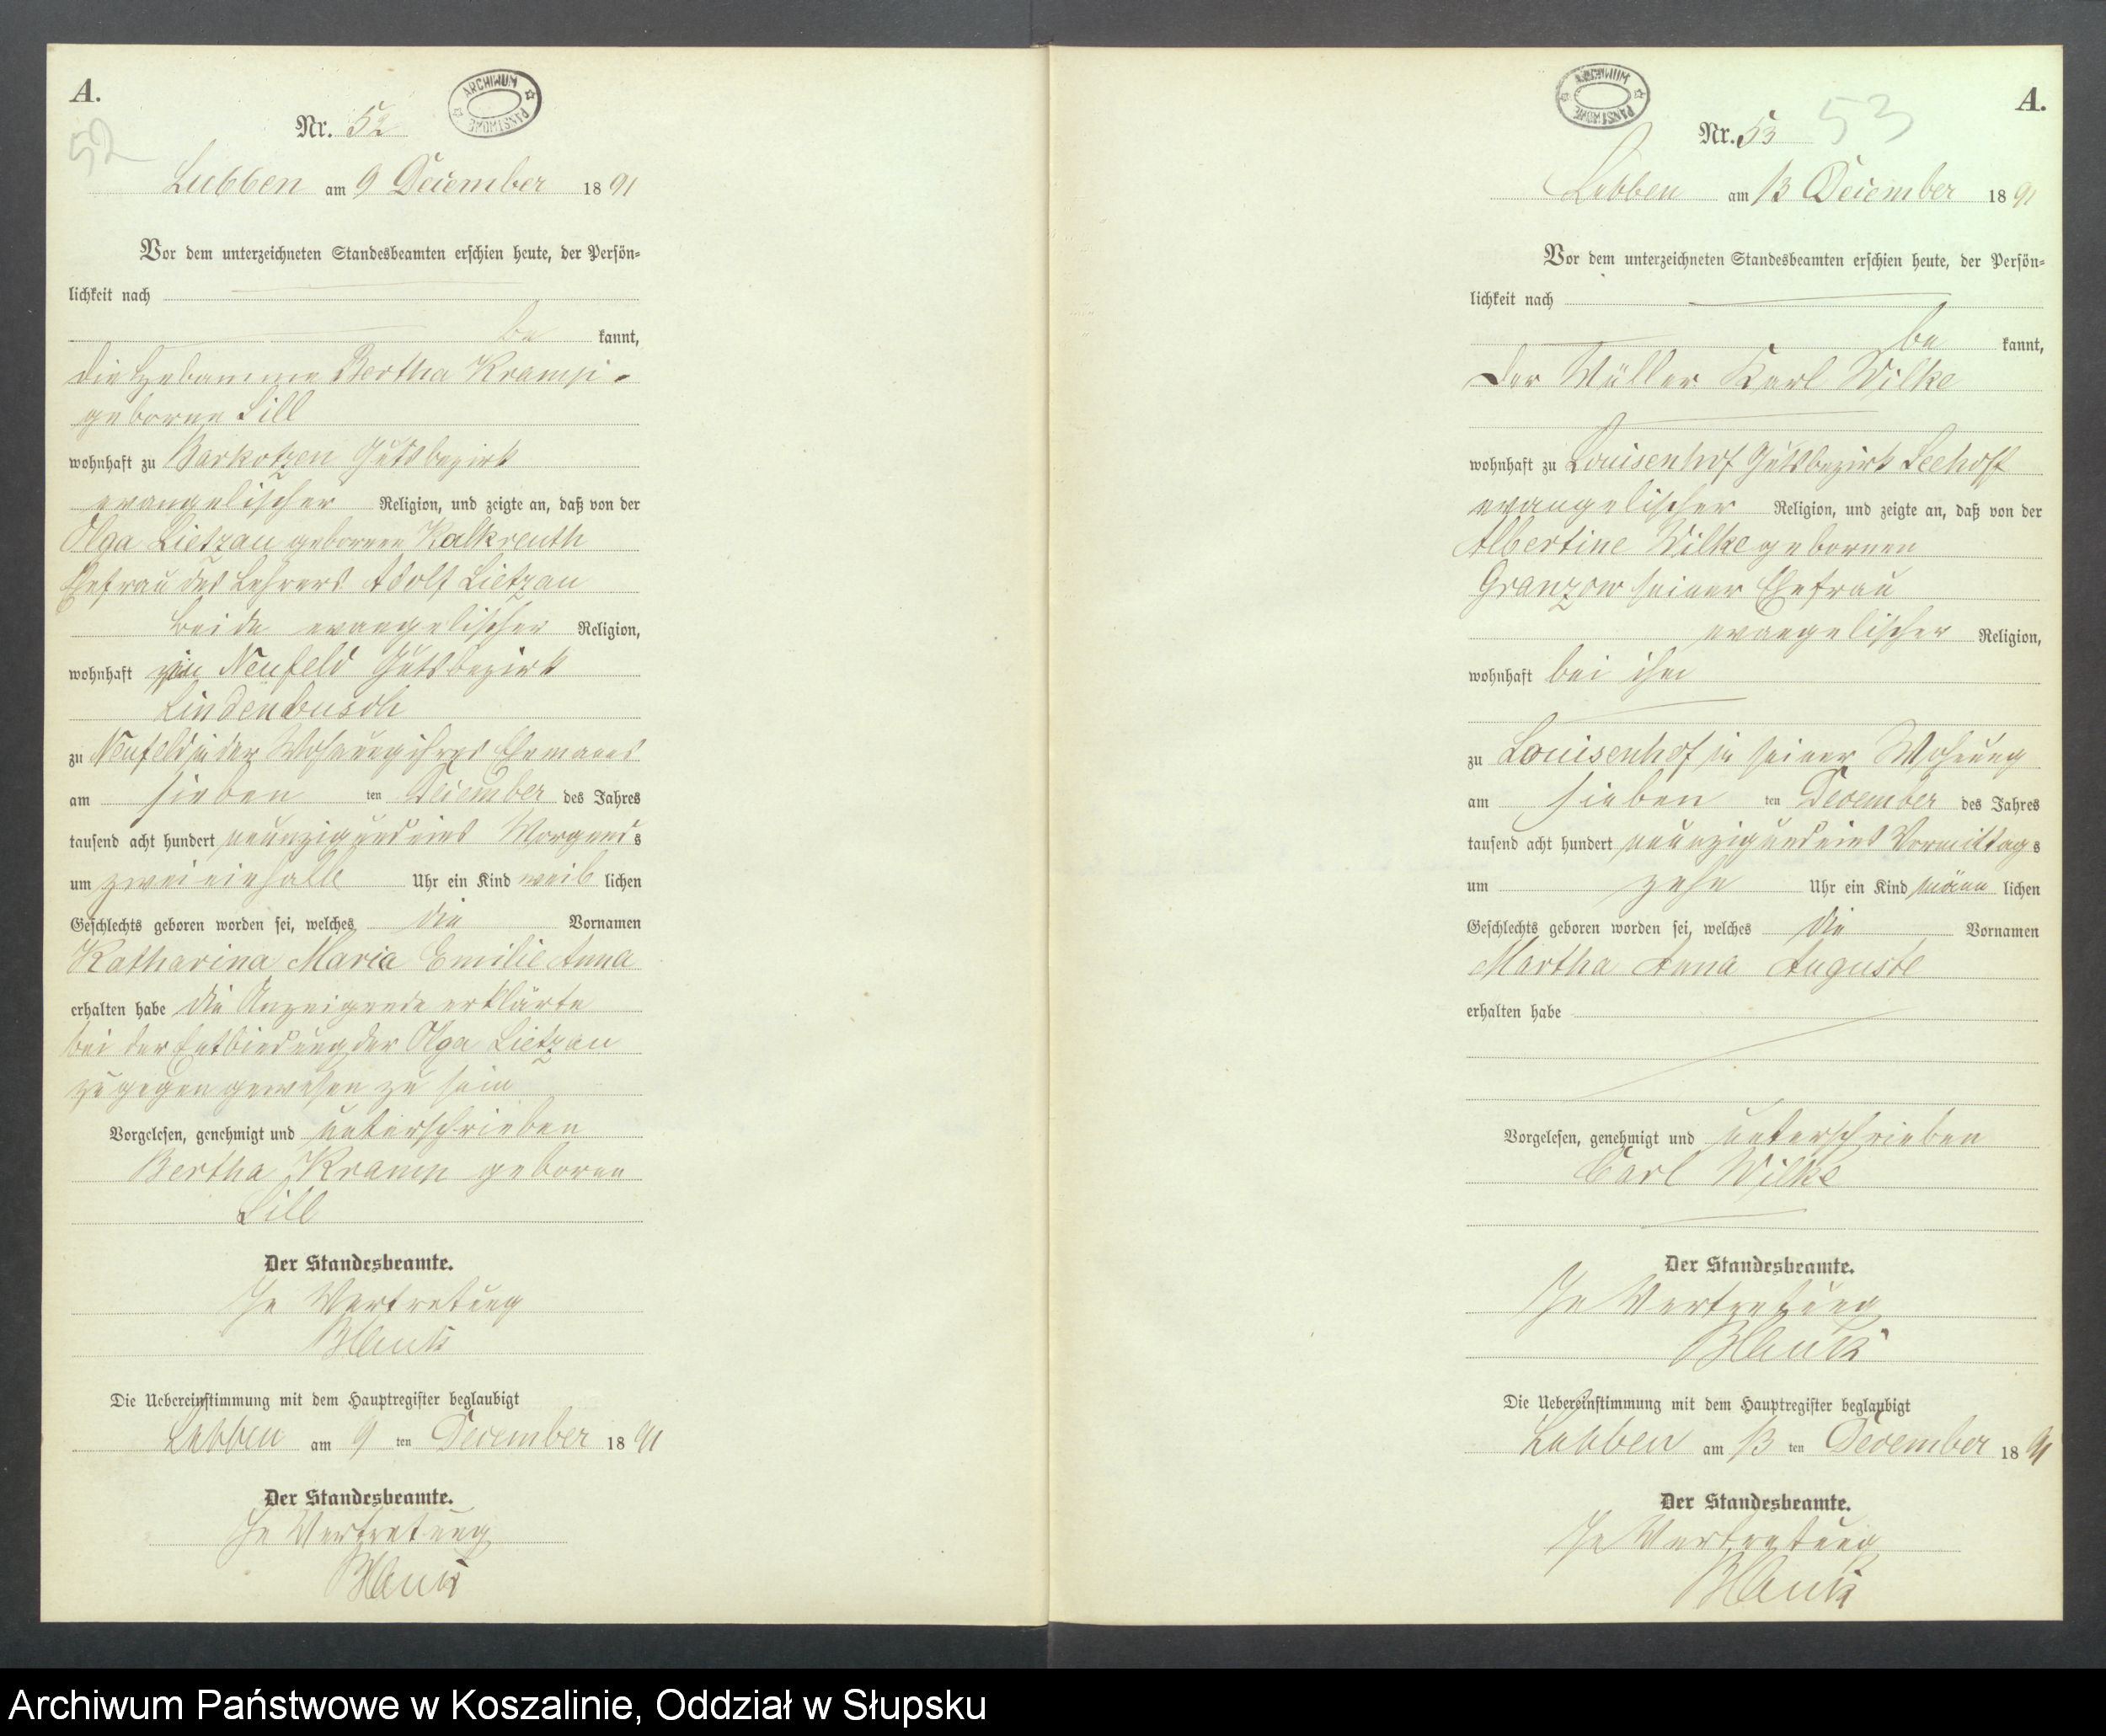 A.
52
Nr. 52
ARCHIWUM PAŃSTWOWE
Lubben am 9 December 1891
Vor dem unterzeichneten Standesbeamten erschien heute, der Persön-
lichkeit nach
be kannt,
die Hebamme Bertha Kramp
geborne Lill
wohnhaft zu Barkotzen Gutsbezirk
evangelischer Religion, und zeigte an, daß von der
Olga Lietzau geborenen Kalkreuth
Ehefrau des Lehrers Adolf Lietzau
beide evangelischer Religion,
wohnhaft Neufeld Gutsbezirk
Lindenbusch
zu Neufeld in der Wohnung ihres Ehemanns
am sieben ten December des Jahres
tausend acht hundert neunzig und eins Morgens
um zweieinhalb Uhr ein Kind weib lichen
Geschlechts geboren worden sei, welches die Vornamen
Katharina Maria Emilie Anna
erhalten habe die Anzeigende erklärte
bei der Entbindung der Olga Lietzau
zugegen gewesen zu sein
Vorgelesen, genehmigt und unterschrieben
Bertha Kramp geborne
Lill
Der Standesbeamte.
In Vertretung
Die Uebereinstimmung mit dem Hauptregister beglaubigt
Lubben am 9 ten December 1891
Der Standesbeamte.
In Vertretung
A.
ARCHIWUM PAŃSTWOWE
Nr. 53 53
Lubben am 13 December 1891
Vor dem unterzeichneten Standesbeamten erschien heute, der Persön-
lichkeit nach
be kannt,
der Müller Karl Wilke
wohnhaft zu Louisenhof Gutsbezirk Seehoff
evangelischer Religion, und zeigte an, daß von der
Albertine Wilke gebornen
Granzow seiner Ehefrau
evangelischer Religion,
wohnhaft bei ihm
zu Louisenhof in seiner Wohnung
am sieben ten December des Jahres
tausend acht hundert neunzig und eins Vormittags
um zehn Uhr ein Kind männ lichen
Geschlechts geboren worden sei, welches die Vornamen
Martha Anna Auguste
erhalten habe
Vorgelesen, genehmigt und unterschrieben
Carl Wilke
Der Standesbeamte.
In Vertretung
Die Uebereinstimmung mit dem Hauptregister beglaubigt
Lubben am 13 ten December 1891
Der Standesbeamte.
In Vertretung
Archiwum Państwowe w Koszalinie, Oddział w Słupsku